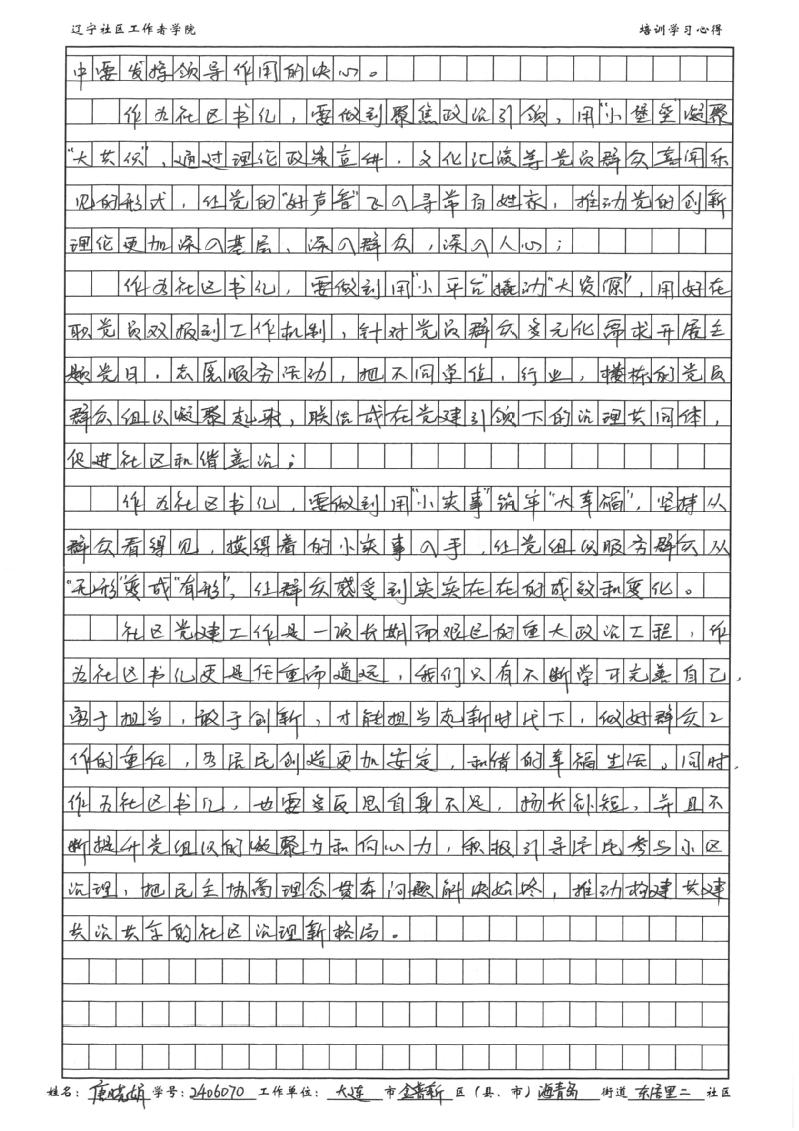 辽宁社区工作者学院 培训学习心得
中要发挥领导作用的决心。
作为社区书记，要做到聚焦政治引领，用“小堡垒”凝聚
“大共识”，通过理论政策宣讲，文化汇演等党员群众喜闻乐
见的形式，让党的“好声音”飞入寻常百姓家，推动党的创新
理论更加深入基层、深入群众，深入人心；
作为社区书记，要做到用“小平台”撬动“大资源”，用好在
职党员双报到工作机制，针对党员群众多元化需求开展主
题党日，志愿服务活动，把不同单位，行业，楼栋的党员
群众组织凝聚起来，联结成在党建引领下的治理共同体，
促进社区和谐善治；
作为社区书记，要做到用“小实事”筑牢“大幸福”，坚持从
群众看得见，摸得着的小实事入手，让党组织服务群众从
“无形”变成“有形”，让群众感受到实实在在的成效和变化。
社区党建工作是一项长期而艰巨的重大政治工程，作
为社区书记更是任重而道远，我们只有不断学习完善自己，
勇于担当，敢于创新，才能担当起新时代下，做好群众工
作的重任，为居民创造更加安定，和谐的幸福生活。同时，
作为社区书记，也要多反思自身不足，扬长补短，并且不
断提升党组织的凝聚力和向心力，积极引导居民参与小区
治理，把民主协商理念贯穿问题解决始终，推动构建共建
共治共享的社区治理新格局。
姓名：唐晓娟 学号：2406070 工作单位：大连 市 金普新 区（县、市）海青岛 街道 东居里二 社区